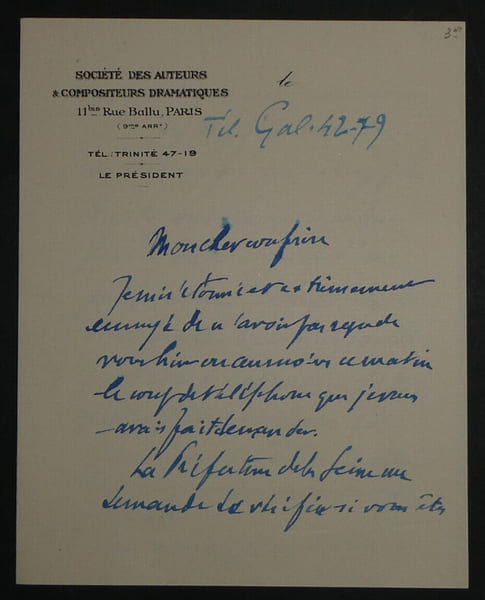 3 nt
SOCIÉTÉ DES AUTEURS
& COMPOSITEURS DRAMATIQUES
11bis Rue Ballu, PARIS
(9me ARRt)
TÉL : TRINITÉ 47-19
LE PRÉSIDENT
le
Tél. Gal. 42-79
Mon cher confrère
Je suis étonné et extrêmement
ennuyé de n'avoir pas reçu de
vous hier ou au moins ce matin
le coup de téléphone que je vous
avais fait demander.
La Préfecture de la Seine me
demande de vérifier si vous êtes